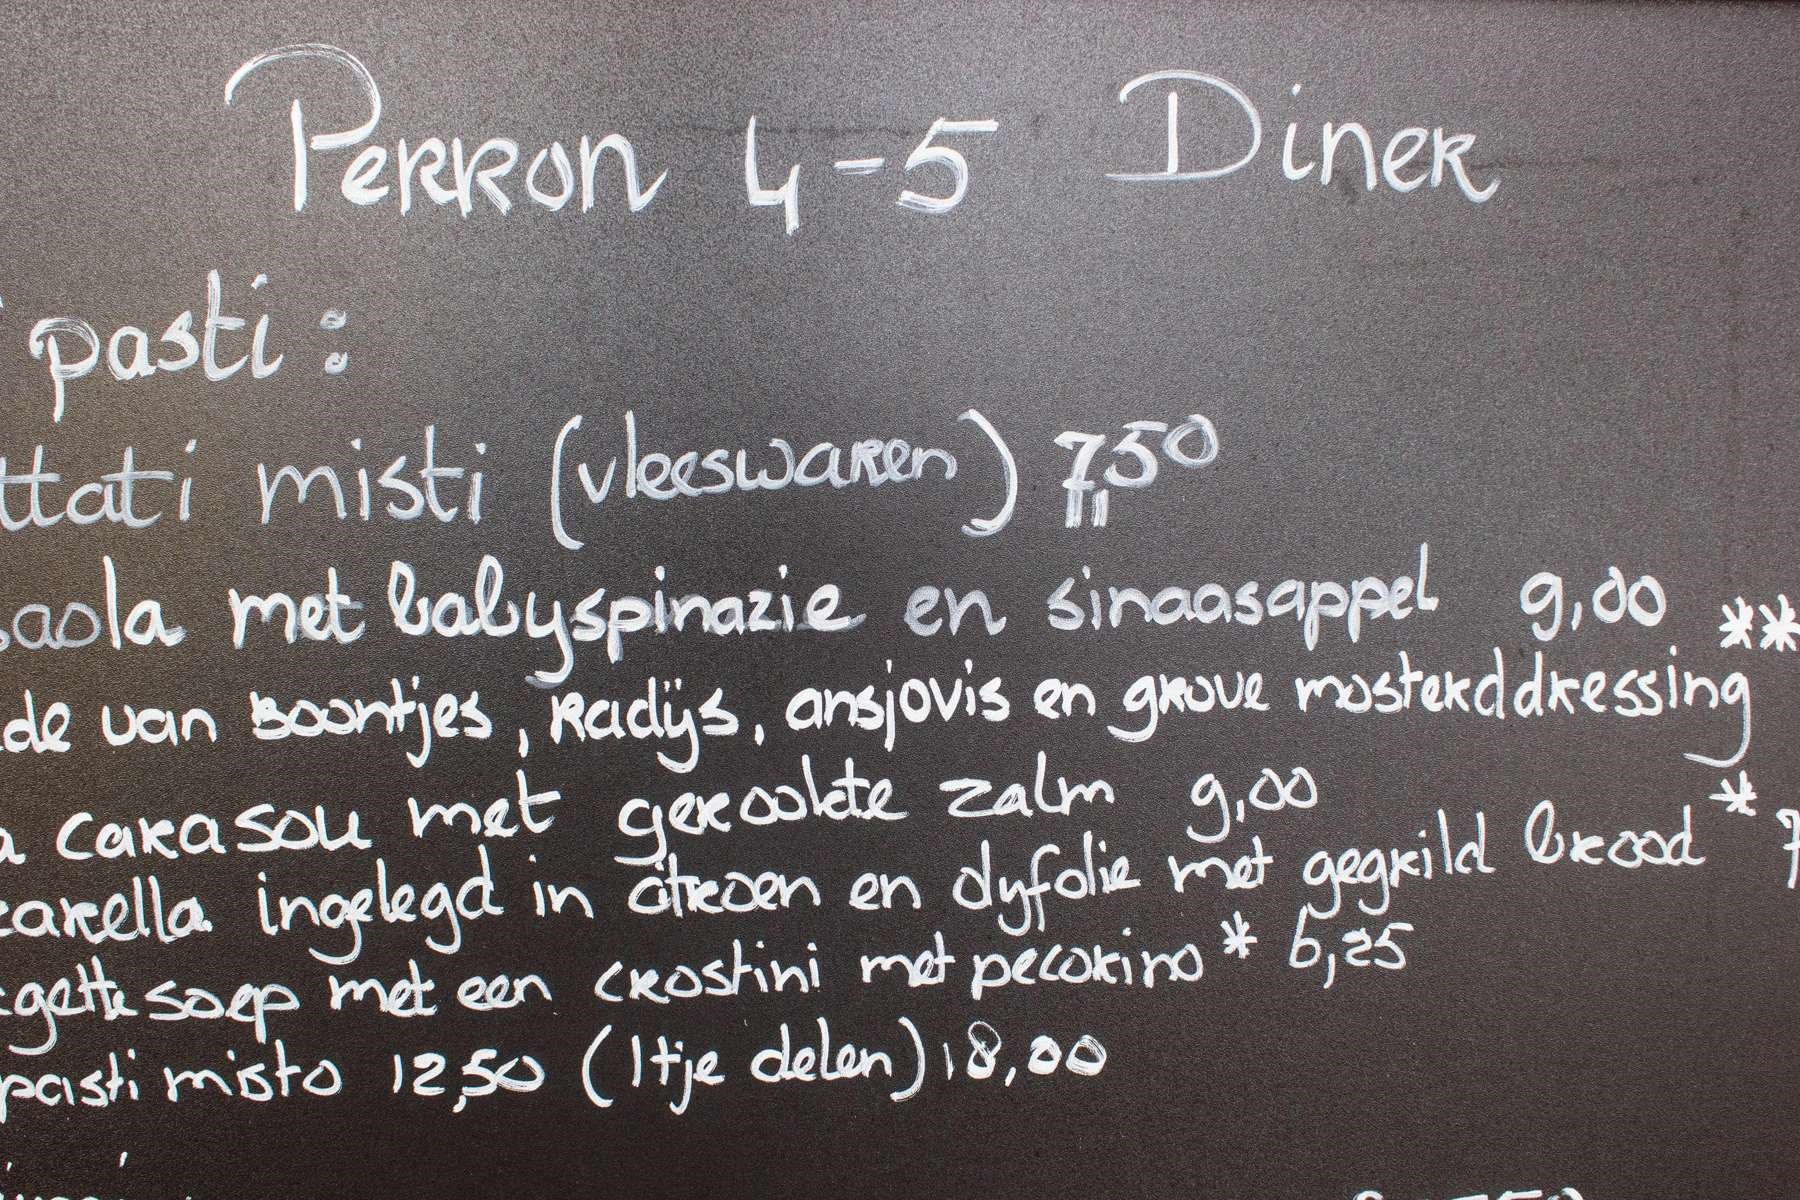 Perron 4-5 Diner
pasti:
ttati misti (vleeswaren) 7,50
saola met babyspinazie en sinaasappel 9,00
de van boontjes, radijs, ansjovis en grove mosterddressing **
a carasou met gerookte zalm 9,00
zarella ingelegd in citroen en dyfolie met gegrild brood * 7
gettesoep met een crostini met pecorino * 6,25
pasti misto 12,50 (1tje delen) 18,00